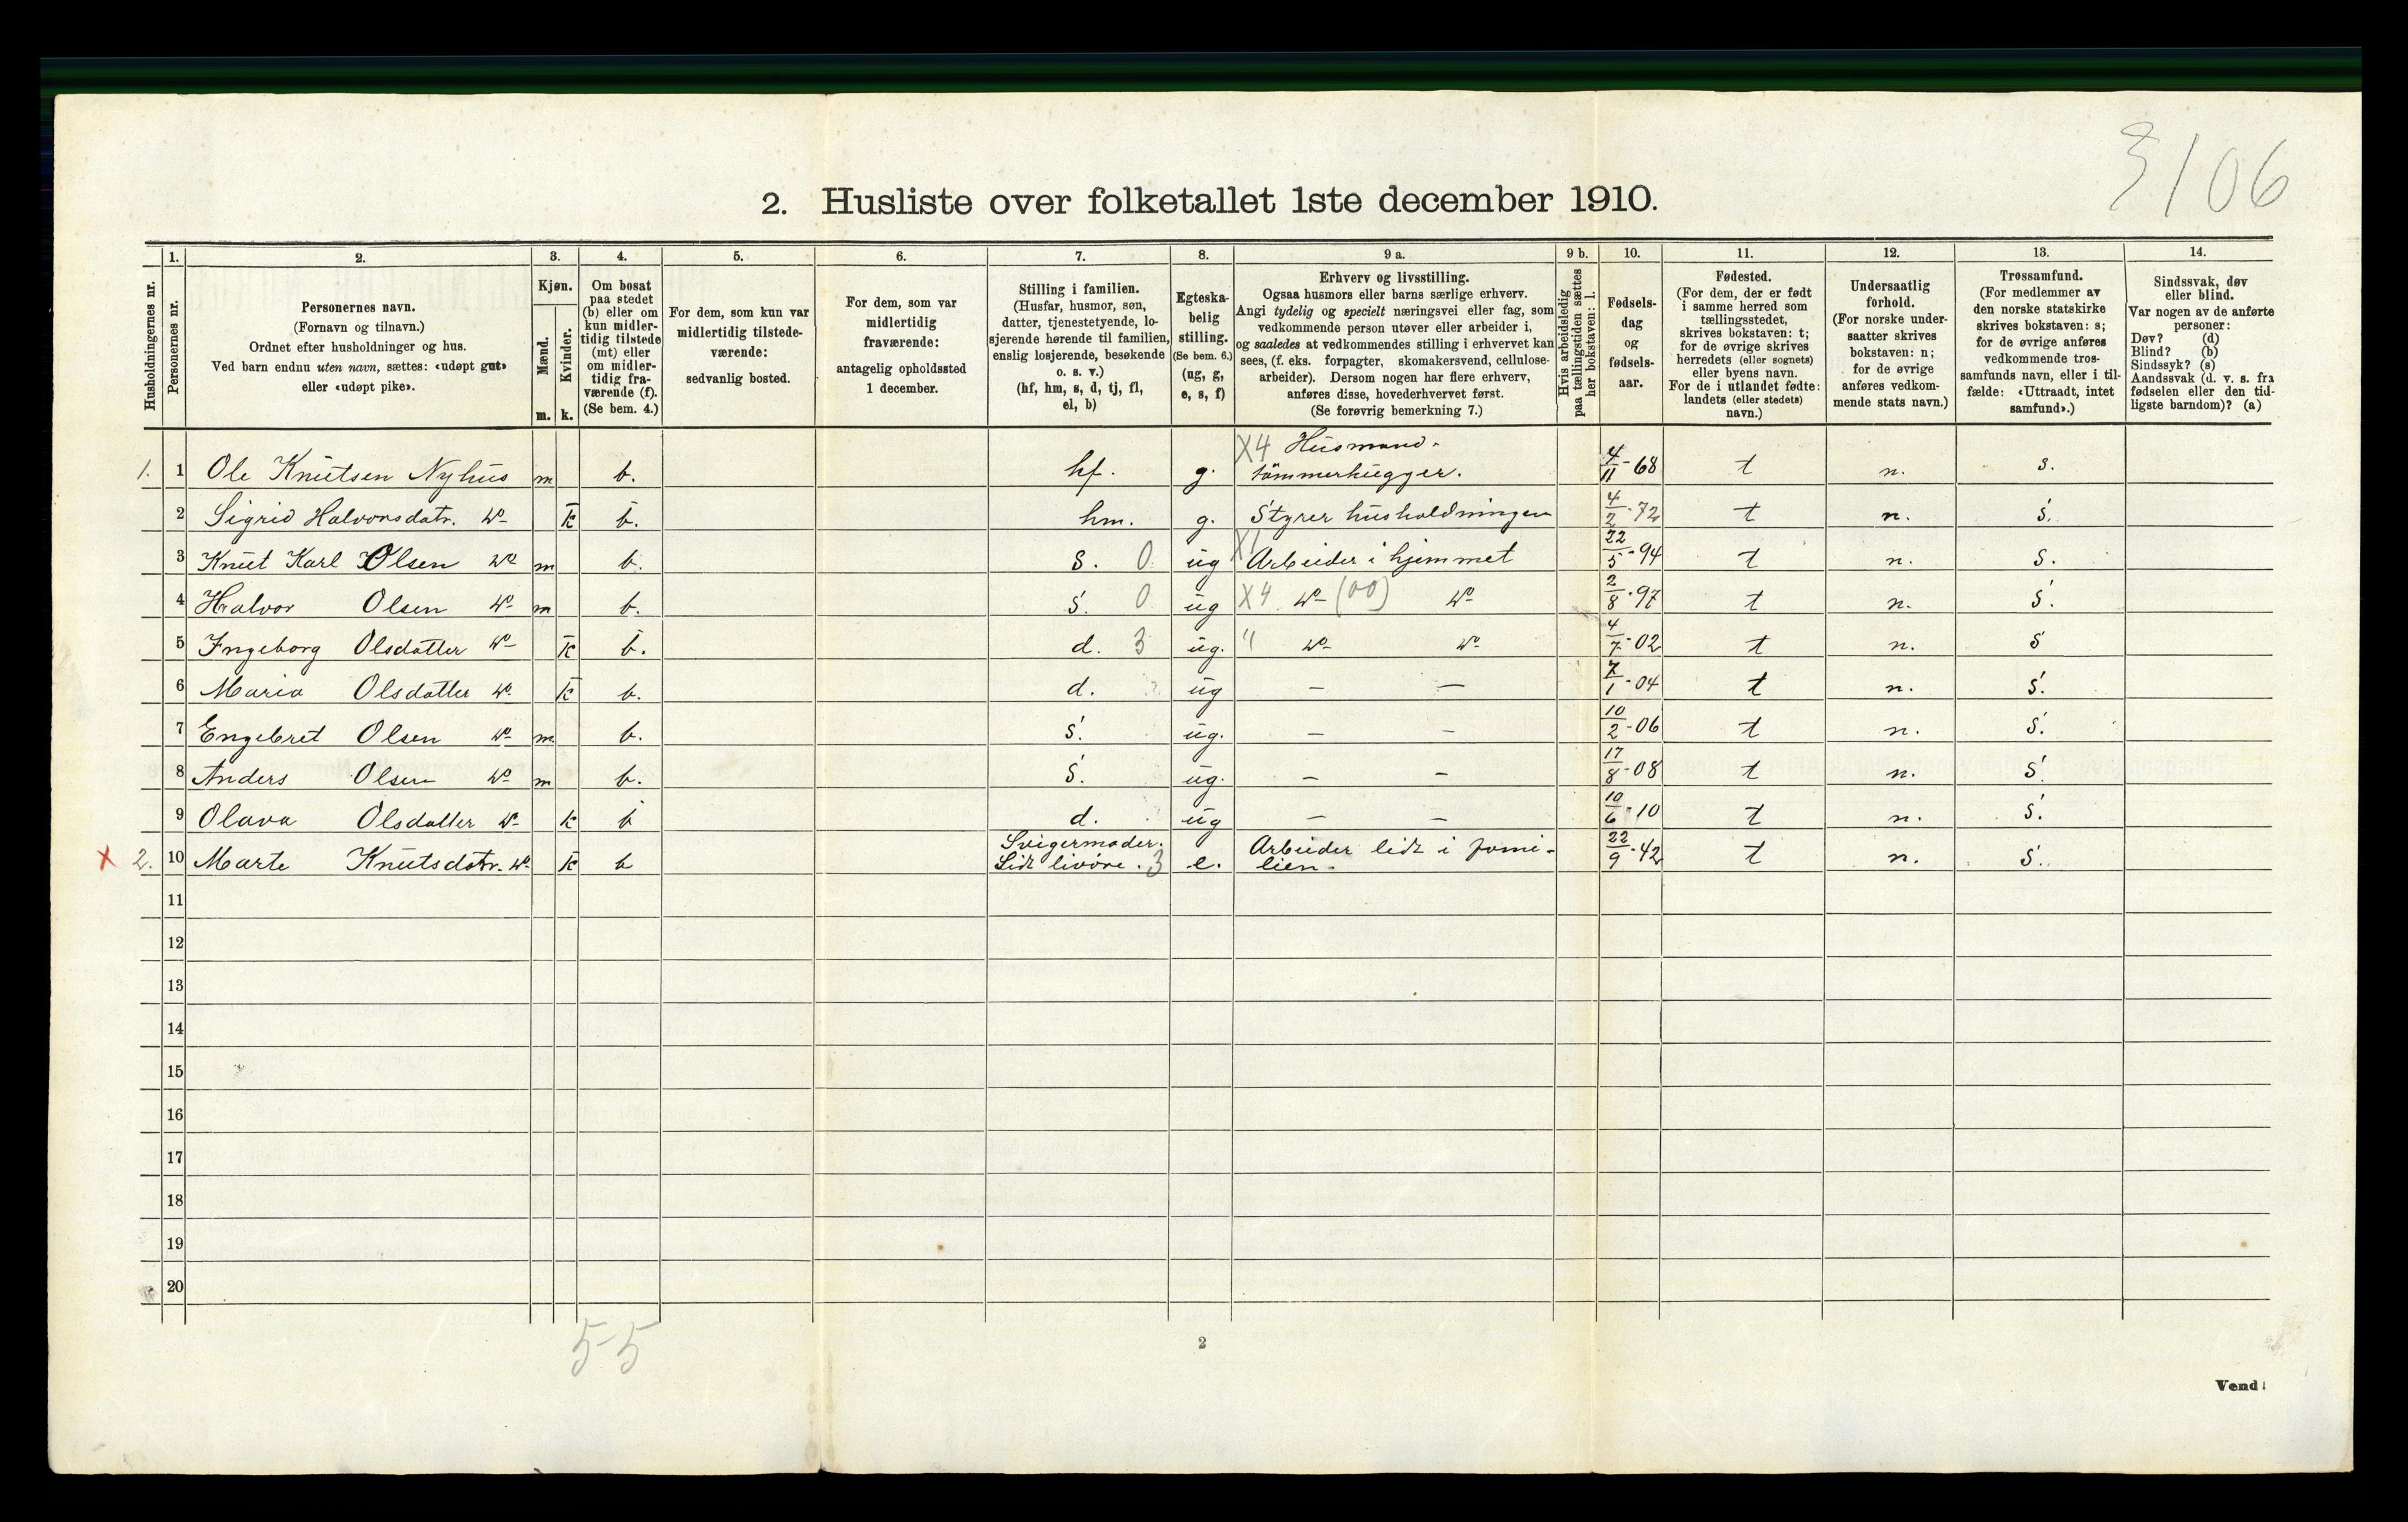 3106
2. Husliste over folketallet 1ste december 1910.
Husholdningernes nr.
1.
Personernes nr.
2.
Personernes navn.
(Fornavn og tilnavn.)
Ordnet efter husholdninger og hus.
Ved barn endnu uten navn, sættes: «udøpt gut»
eller «udøpt pike».
3.
Kjøn.
Mænd.
Kvinder.
m. k.
4.
Om bosat
paa stedet
(b) eller om
kun midler-
tidig tilstede
(mt) eller
om midler-
tidig fra-
værende (f).
(Se bem. 4.)
5.
For dem, som kun var
midlertidig tilstede-
værende:
sedvanlig bosted.
6.
For dem, som var
midlertidig
fraværende:
antagelig opholdssted
1 december.
7.
Stilling i familien.
(Husfar, husmor, søn,
datter, tjenestetyende, lo-
sjerende hørende til familien,
enslig losjerende, besøkende
o. s. v.)
(hf, hm, s, d, tj, fl,
el, b)
8.
Egteska-
belig
stilling.
(Se bem. 6.)
(ug, g,
e, s, f)
9 a.
Erhverv og livsstilling.
Ogsaa husmors eller barns særlige erhverv.
Angi tydelig og specielt næringsvei eller fag, som
vedkommende person utøver eller arbeider i,
og saaledes at vedkommendes stilling i erhvervet kan
sees, (f. eks. forpagter, skomakersvend, cellulose-
arbeider). Dersom nogen har flere erhverv,
anføres disse, hovederhvervet først.
(Se forøvrig bemerkning 7.)
9 b.
Hvis arbeidsledig
paa tællingstiden sættes
her bokstaven: l.
10.
Fødsels-
dag
og
fødsels-
aar.
11.
Fødested.
(For dem, der er født
i samme herred som
tællingsstedet,
skrives bokstaven: t;
for de øvrige skrives
herredets (eller sognets)
eller byens navn.
For de i utlandet fødte:
landets (eller stedets)
navn.)
12.
Undersaatlig
forhold.
(For norske under-
saatter skrives
bokstaven: n;
for de øvrige
anføres vedkom-
mende stats navn.)
13.
Trossamfund.
(For medlemmer av
den norske statskirke
skrives bokstaven: s;
for de øvrige anføres
vedkommende tros-
samfunds navn, eller i til-
fælde: «Uttraadt, intet
samfund».)
14.
Sindssvak, døv
eller blind.
Var nogen av de anførte
personer:
Døv? (d)
Blind? (b)
Sindssyk? (s)
Aandssvak (d. v. s. fra
fødselen eller den tid-
ligste barndom)? (a)
1. 1 Ole Knutsen Nyhus m b. hf. g. X4 Husmand-
tømmerhugger. 4/11-68 t n. s.
2 Sigrid Halvorsdatr. do k b. hm. g. Styrer husholdningen 4/2-72 t n. s.
3 Knut Karl Olsen do m b. s. 0 ug X1 Arbeider i hjemmet 22/5-94 t n. s.
4 Halvor Olsen do m b. s. 0 ug X4 do (00) do 2/8-97 t n. s.
5 Ingeborg Olsdatter do k b. d. 3 ug. " do do 4/7-02 t n. s
6 Maria Olsdatter do k b. d. ug — — 7/1-04 t n. s.
7 Engebret Olsen do m b. s. ug. — — 10/2-06 t n. s.
8 Anders Olsen do m b. s. ug. — — 17/8-08 t n. s.
9 Olava Olsdatter do k b d. ug — — 10/6-10 t n. s.
X 2. 10 Marte Knutsdatr. do k b Svigermoder.
Lidt livøre. 3 e. Arbeider lidt i fami-
lien. 22/9-42 t n. s.
11
12
13
14
15
16
17
18
19
20
5-5
2
Vend!